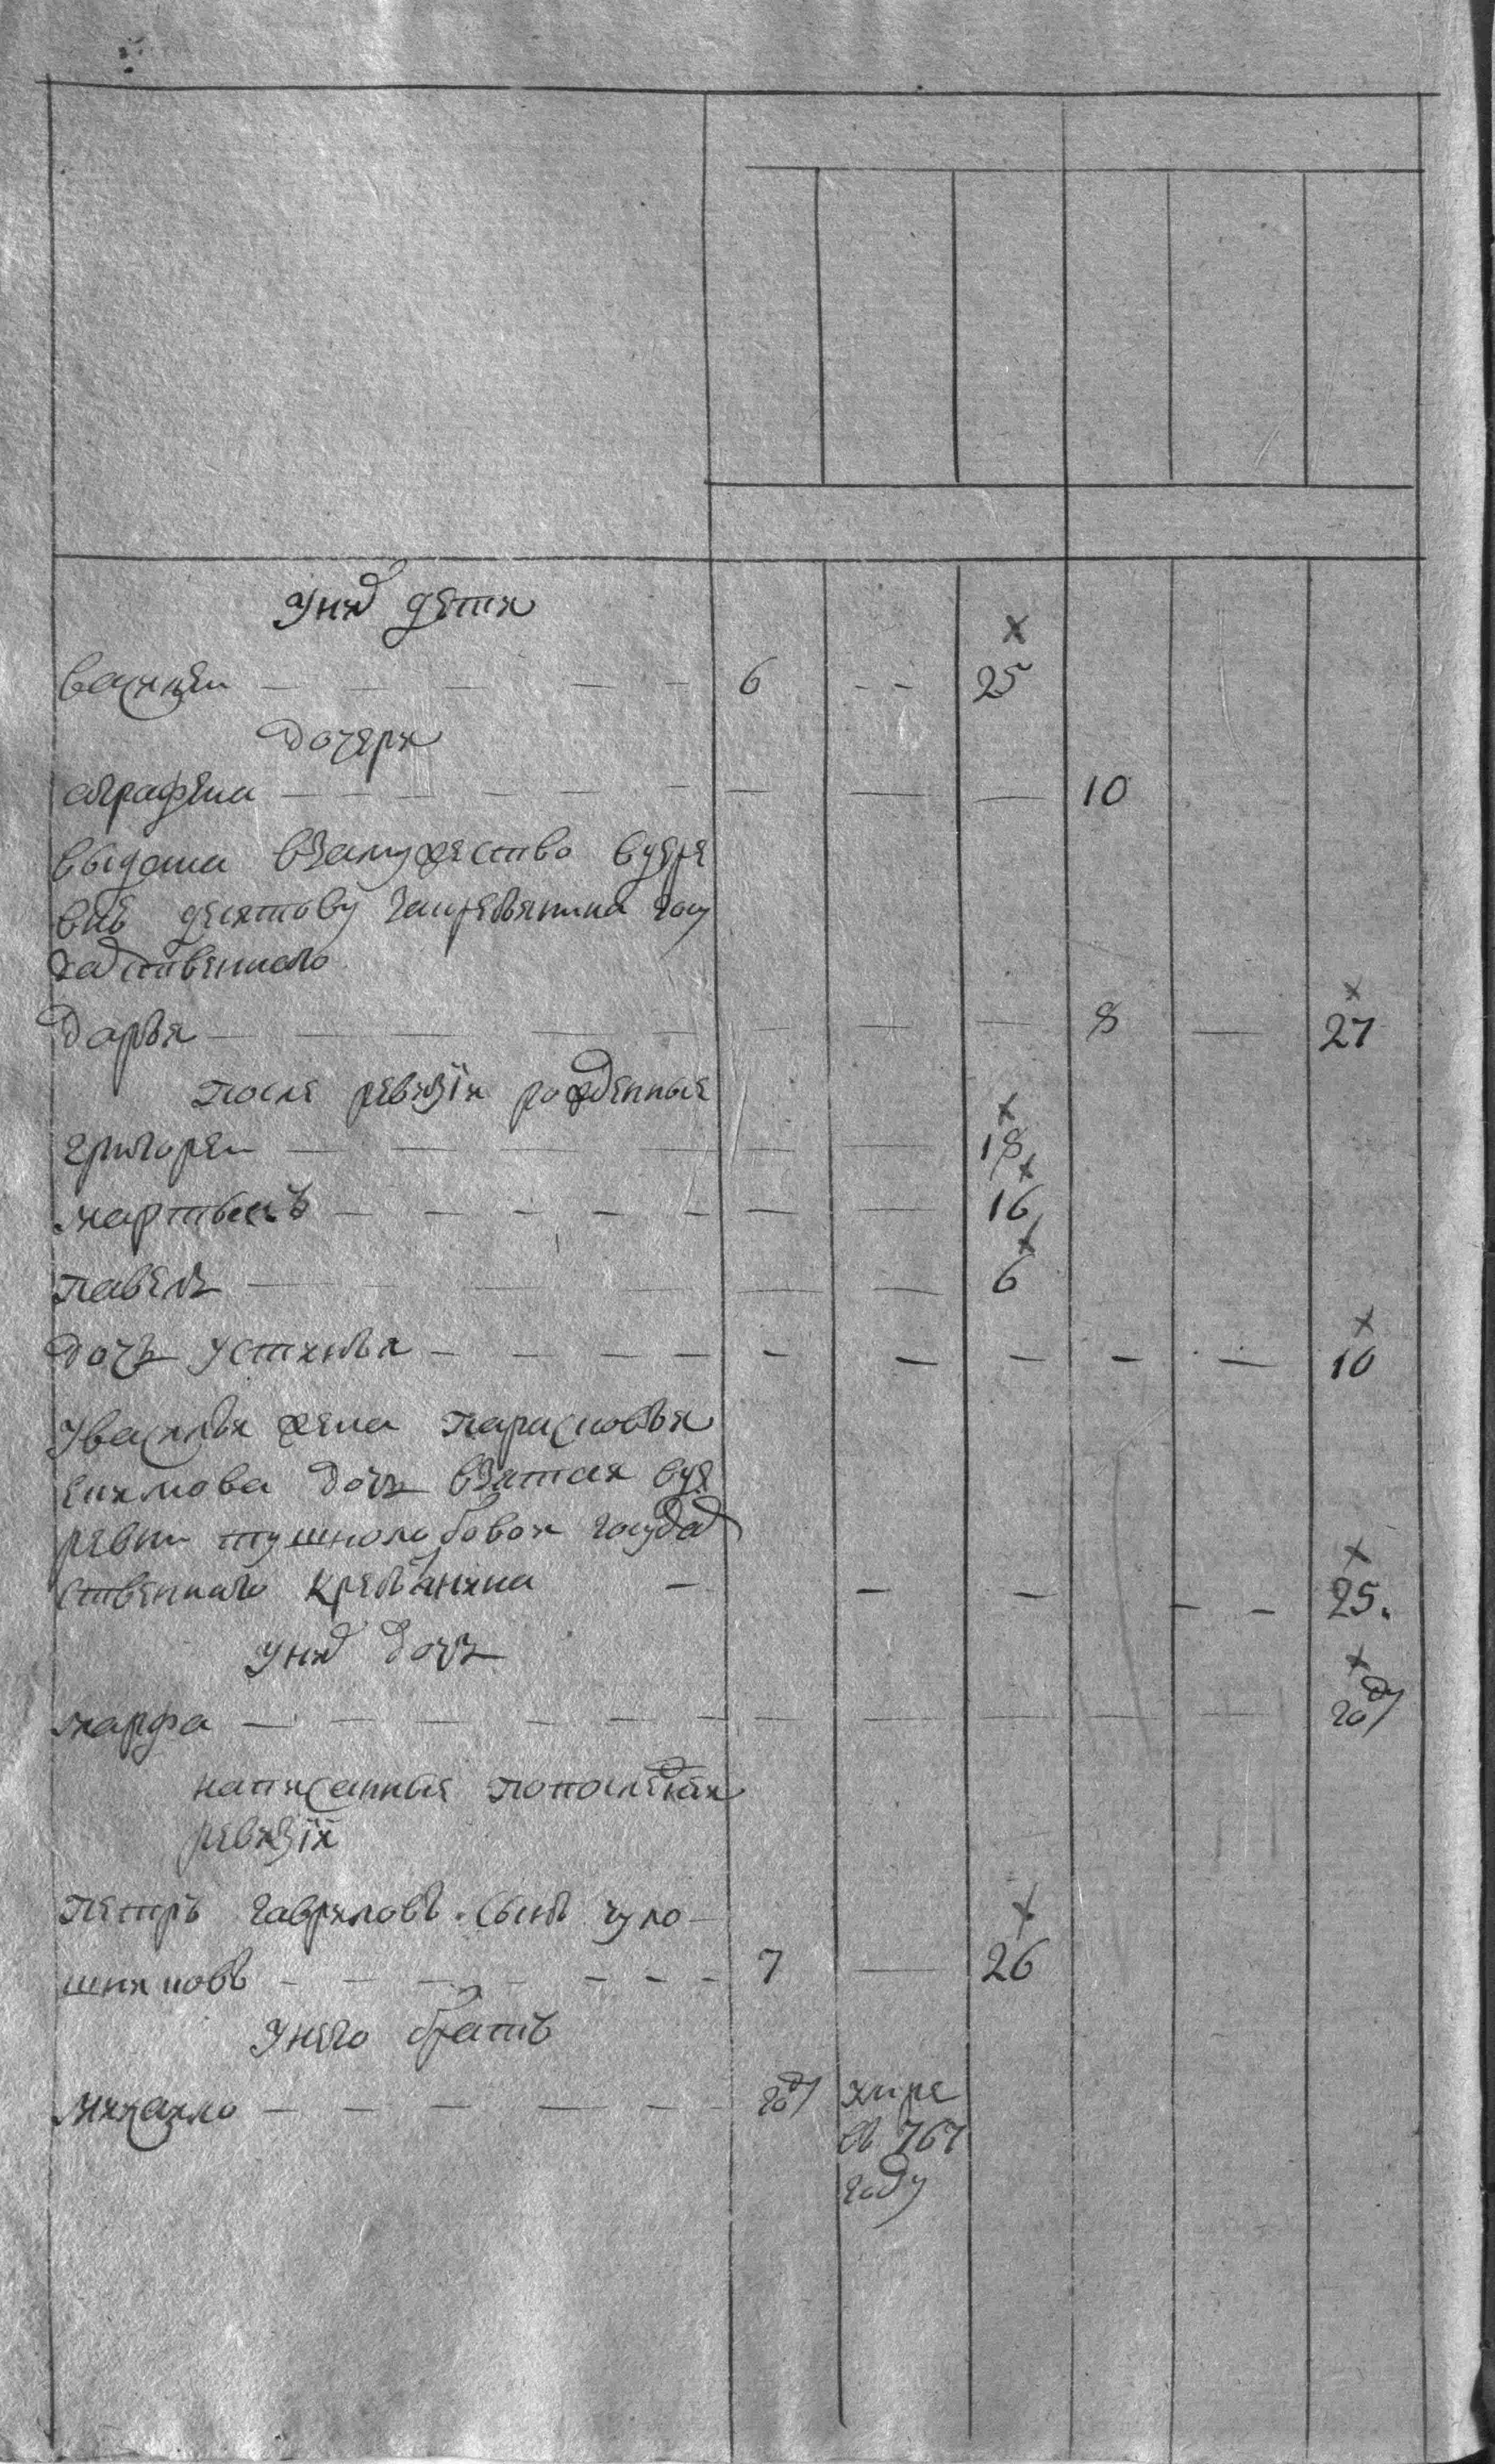 у них дети
василеи — — — — — 6 - - 25
дочери
аграфена — — — — — — — — — 10
выдана взамужество вдере
вню десятову гасу
дарственнаго
дарья — — — — — — — — 8 — 27
после ревизiи рожденные
григореи — — — — — — 18
мартынъ — — — — — — — 16
павелъ — — — — — — 6
дочь устинья — — — — — — — — — — 10
у василья жена парасковья
екимова дочь взятая вде
ревни государ
ственнаго крестьянина — — — — — 25.
у них дочь
марфа — — — — — — — — — — — — году
написанныя попоследнеи
ревизiи
петръ гавриловъ сынъ чуло
шниковъ — — — — — — — 7 — 26
у него братъ
михаило — — — — — — году умре
в 767
году